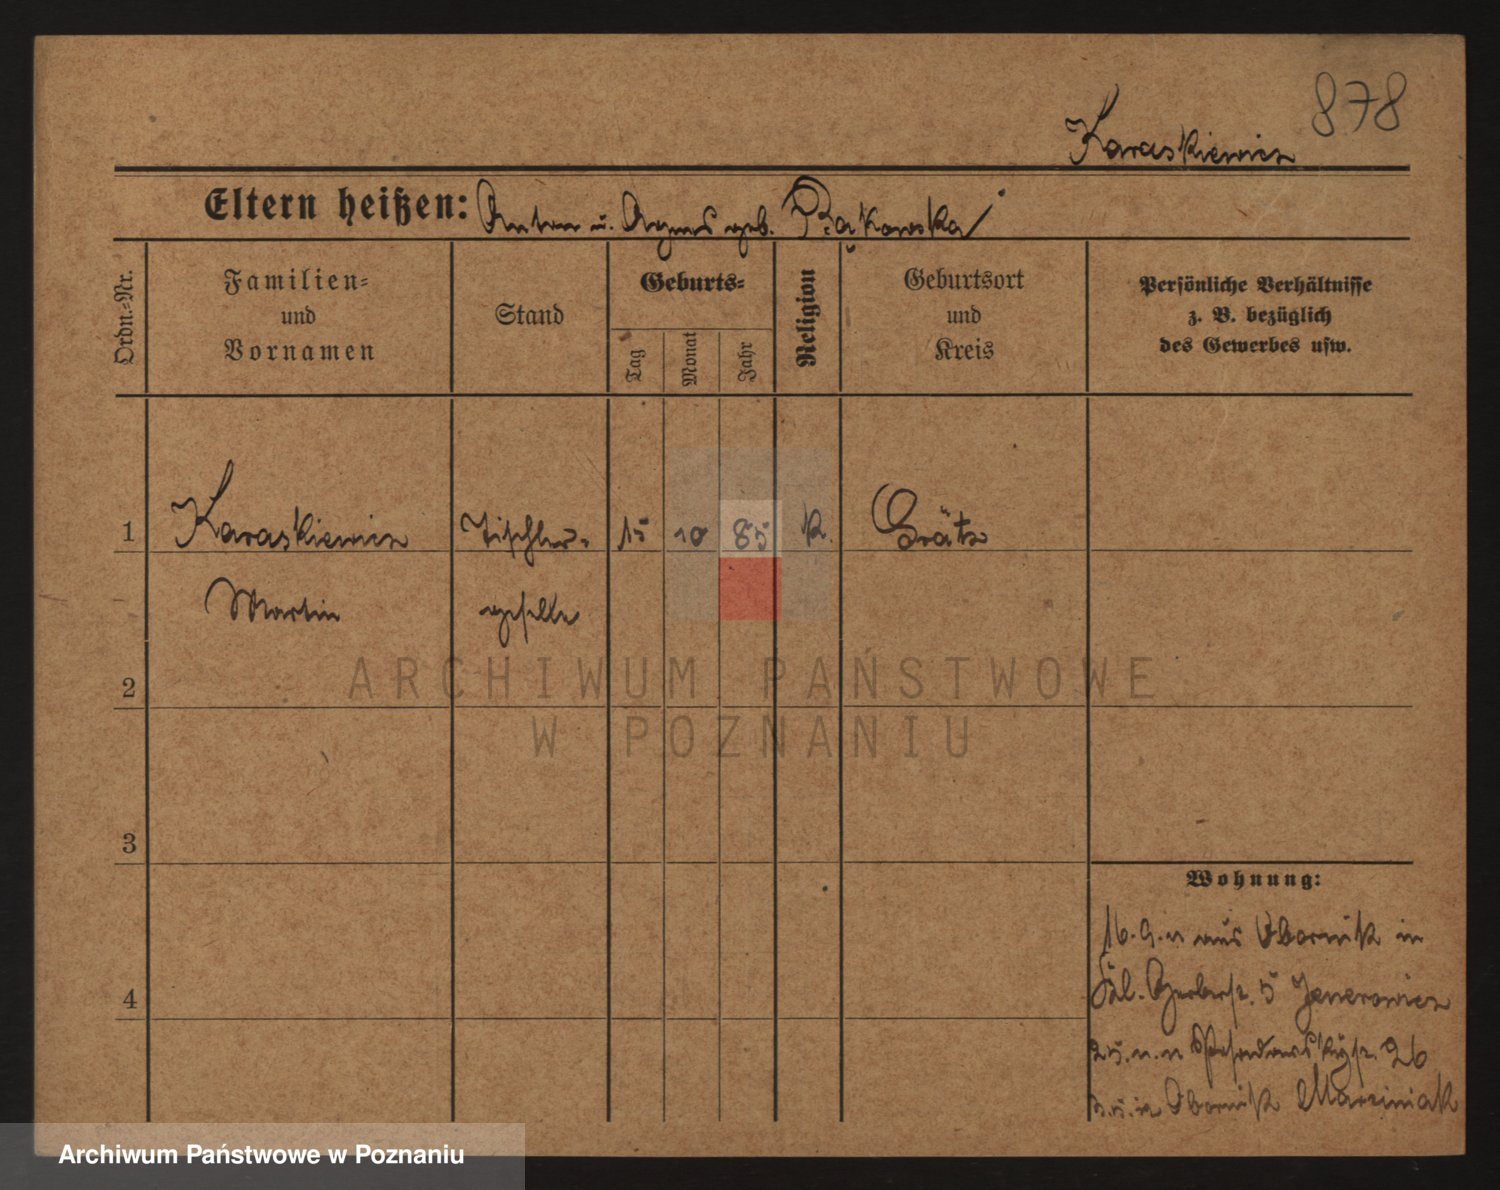 878
Karaskiewicz
Eltern heißen: Anton u. Agnes geb. Bąkowska
Ordn.-Nr.
Familien-
und
Vornamen
Stand
Geburts-
Tag
Monat
Jahr
Religion
Geburtsort
und
Kreis
Persönliche Verhältnisse
z. B. bezüglich
des Gewerbes usw.
1 Karaskiewicz Tischler- 15 10 85 k. Grätz
Martin geselle
2
3
4
Wohnung:
16. 9. 11 aus Obornik in
Gerberstr. 5
26
Obornik Marciniak
ARCHIWUM PAŃSTWOWE
W POZNANIU
Archiwum Państwowe w Poznaniu